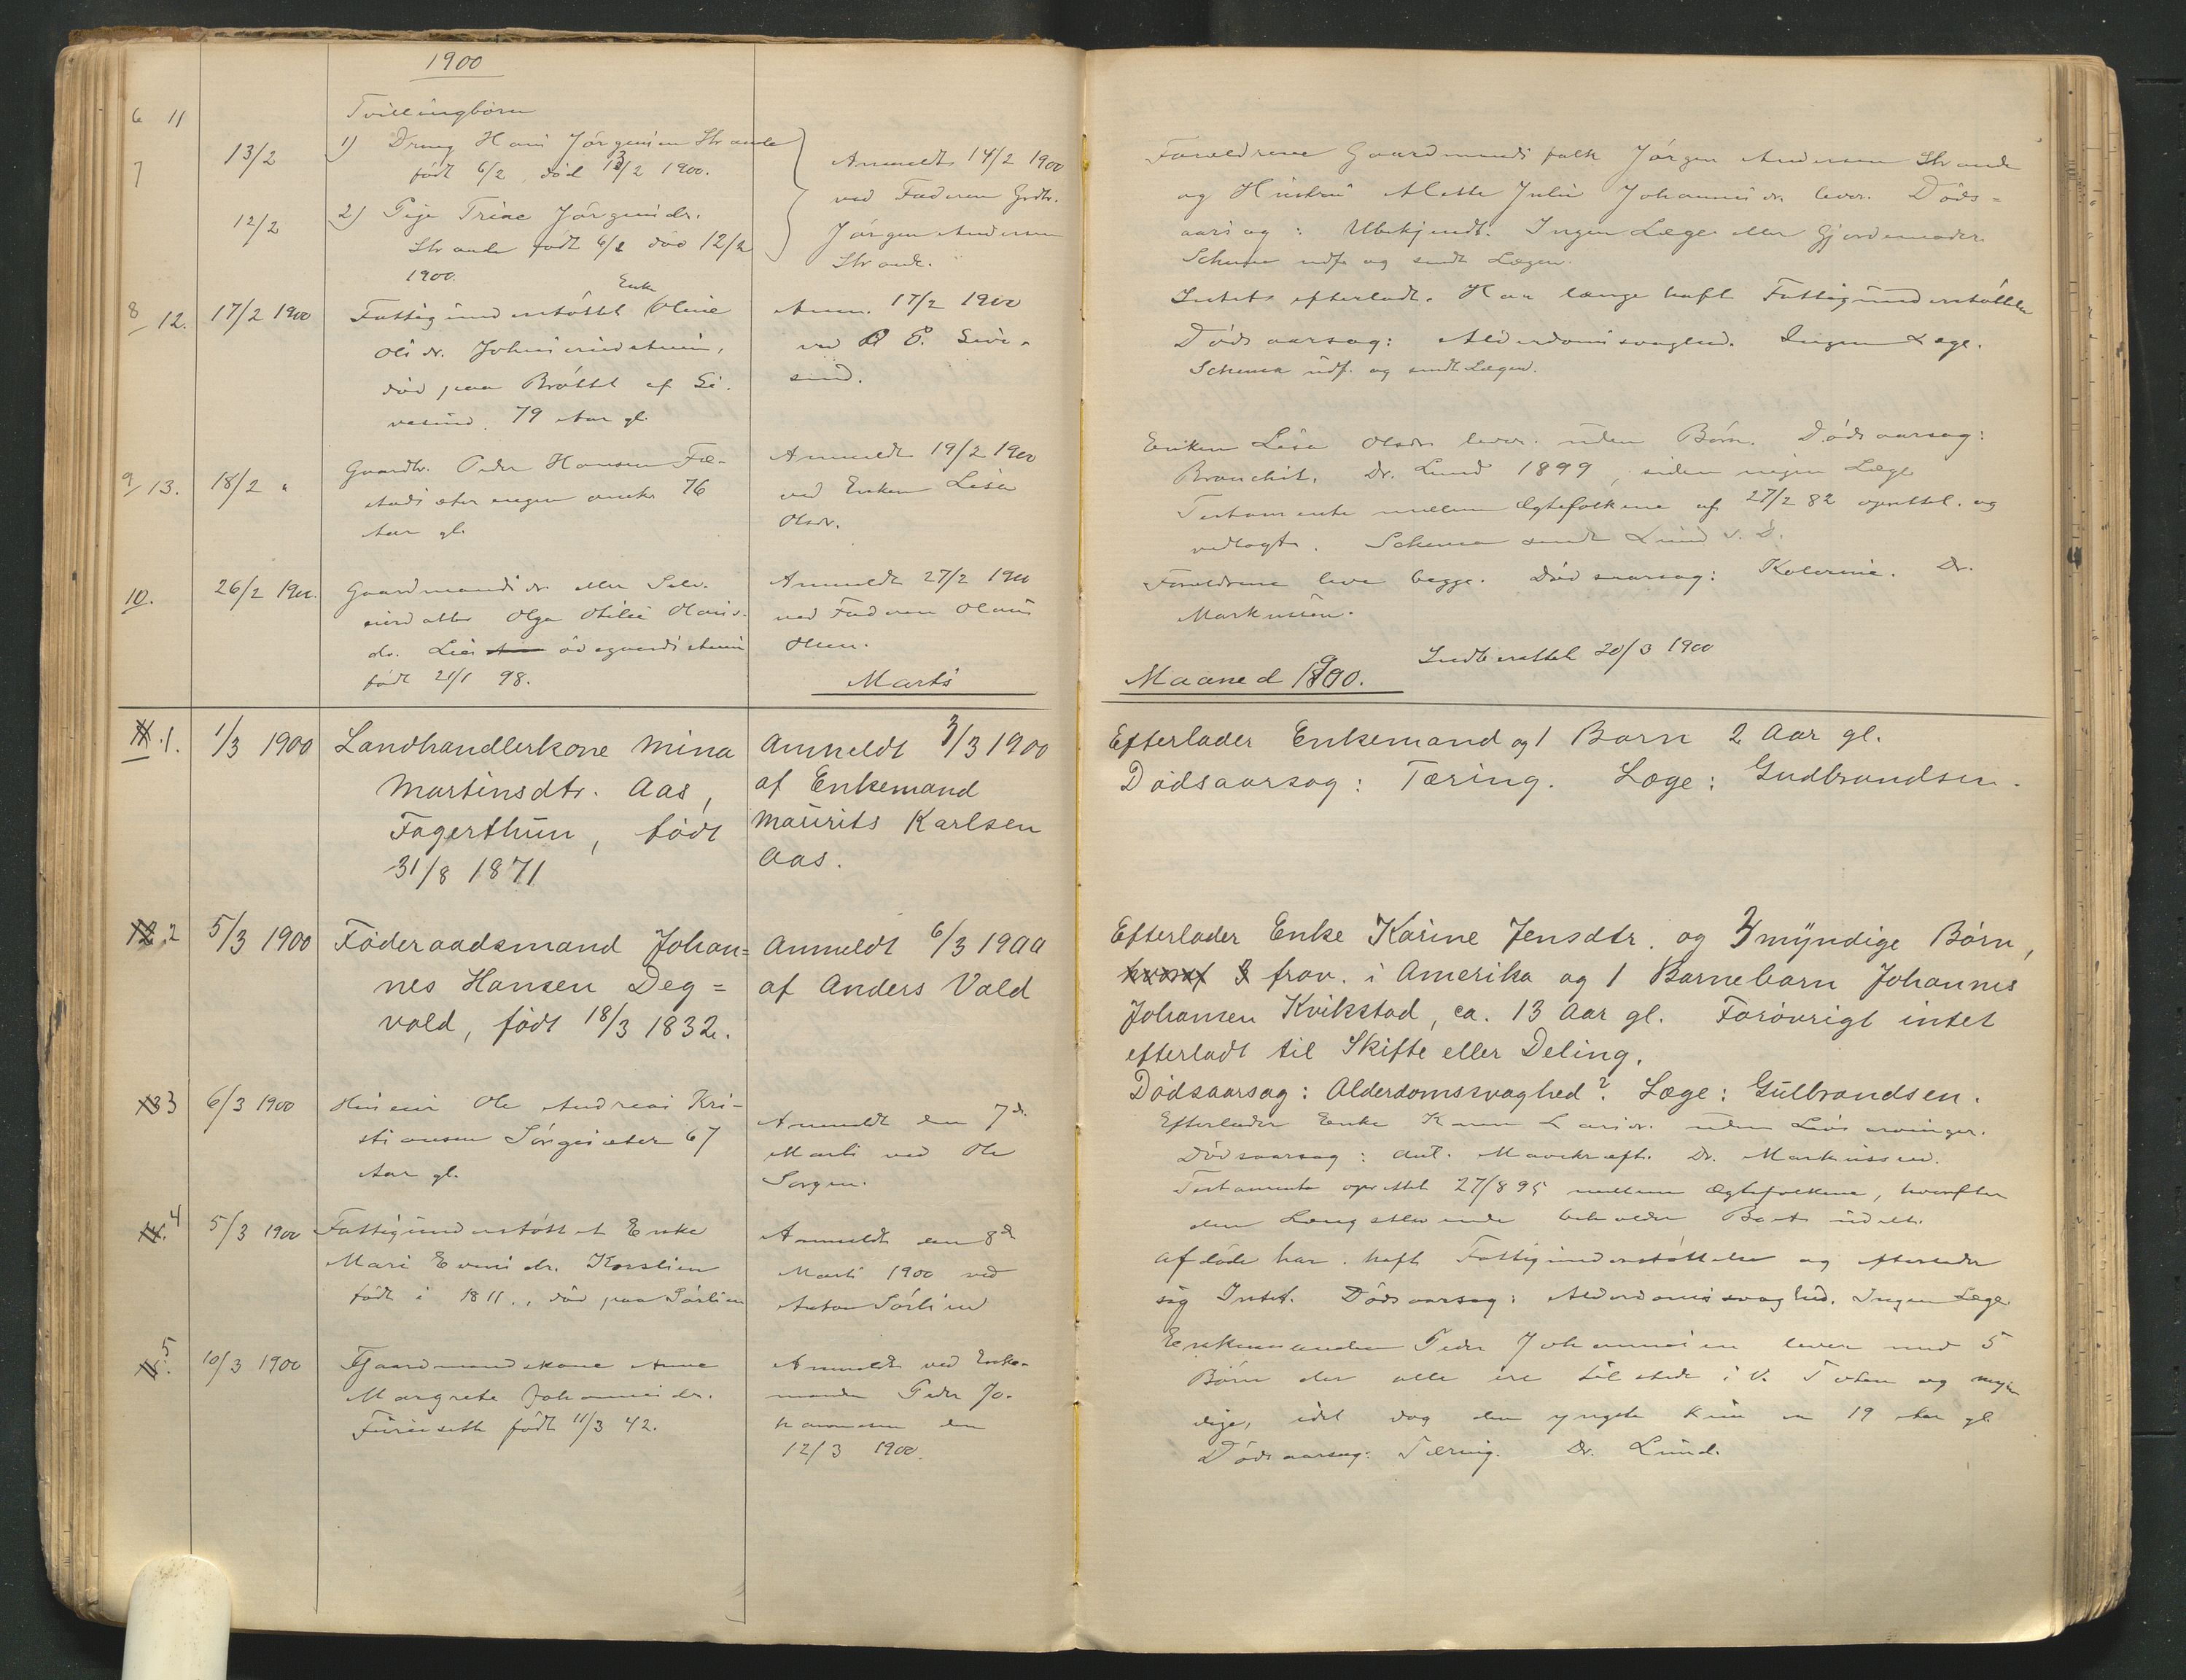 1900
6 11
Tvillingbørn
7
13/2
1) Dreng Hans Jørgensen Strande
født 6/2, død 13/2 1900.
12/2
2) Pige Trine Jørgensdr.
Strande født 6/2 død 12/2
1900.
Anmeldt 14/2 1900
ved Faderen Grdbr.
Jørgen Andersen
Strande.
Forældrene Gaardmandsfolk Jørgen Andersen Strande
og Hustru Alette Julie Johannesdr. lever. Døds=
aarsag: Ubekjendt. Ingen Læge eller Gjordemoder.
Schema udf. og sendt Lægen.
8/12. 17/2 1900
Enke
Fattigunderstøttet Oline
Olsdr.
død paa Brøttet af Si-
vesind. 79 Aar gl.
Anm. 17/2 1900
ved P. Sive-
sind.
Intet efterladt. Har længe havt Fattigunderstøttelse
Dødsaarsag: Alderdomssvaghed. Ingen Læge.
Schema udf. og sendt Lægen.
9/13. 18/2 "
Gaardbr. Peder Hansen Fæ-
76
Aar gl.
Anmeldt 19/2 1900
ved Enken Lisa
Olsdr.
Enken Lisa Olsdr lever. uden Børn. Dødsaarsag:
Bronchit. Dr. Lund 1899, siden ingen Læge
Testamente mellem Ægtefolkene af 27/2 82 oprettet. og
vedlagt. Schema sendt Lund s. D.
10. 26/2 1900.
Gaardmandsdr. eller Selv-
eierdatter Olga Otilie Olaus-
dr. Lies ødegaardseiet
født 21/1 98.
Anmeldt 27/2 1900
ved Faderen Olaus
Olsen.
Forældrene leve begge. Dødsaarsag: Kolerine. Dr.
Markussen.
Indberettet 20/3 1900
Marts Maaned 1900.
11. 1. 1/3 1900
Landhandlerkone Mina
Martinsdtr. Aas,
Fagerthun, født
31/8 1871
Anmeldt 3/3 1900
af Enkemand
Maurits Karlsen
Aas.
Efterlader Enkemand og 1 Barn 2 Aar gl.
Dødsaarsag: Tæring. Læge: Gudbrandsen.
12. 2 5/3 1900
Føderaadsmand Johan=
nes Hansen Deg=
vold, født 18/3 1832.
Anmeldt 6/3 1900
af Anders Vold
Efterlader Enke Karine Jensdtr. og 4 myndige Børn,
hvoraf 3 frav. i Amerika og 1 Barnebarn Johannes
Johansen Kvikstad, ca. 13 Aar gl. Forøvrigt intet
efterladt til Skifte eller Deling.
Dødsaarsag: Alderdomssvaghed? Læge: Gulbrandsen.
13 3 6/3 1900
Huseier Ole Andreas Kri-
stiansen Sørgesæter 67
Aar gl.
Anmeldt den 7de
Marts ved Ole
Sorgen.
Efterlader Enke Karen Larsdr. uden Livsarvinger.
Dødsaarsag: ant. Mavekræft. Dr. Markussen.
Testamente oprettet 27/8 95 mellem Ægtefolkene, hvorefter
den Længstlevende beholder Boet udelt.
14. 4 5/3 1900
Fattigunderstøttet Enke
Mari Evensdr. Korslien
født i 1811., død paa Sørlien
Anmeldt den 8de
Marts 1900 ved
Anton Sørlien
Afdøde har havt Fattigunderstøttelse og efterlader
sig Intet. Dødsaarsag: Alderdomssvaghed. Ingen Læge.
15. 5 10/3 1900
Gaardmandskone Anne
Margrete Johannesdr.
Furuseth født 11/3 42.
Anmeldt ved Enke-
manden Peder Jo-
hannesen den
12/3 1900.
Enkemanden Peder Johannesen lever med 5
Børn der alle ere tilstede i V. Toten og myn
dige, idet dog den yngste kun er 19 Aar gl.
Dødsaarsag: Tæring. Dr. Lund.